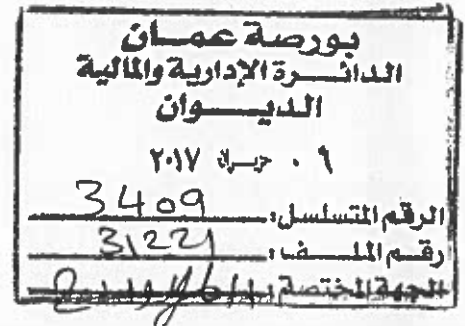 بورصة عمان
الدائرة الإدارية والمالية
الديوان
٠٩ حزيران ٢٠١٧
الرقم المتسلسل: 3409
رقم الملف: 31221
الجهة المختصة: